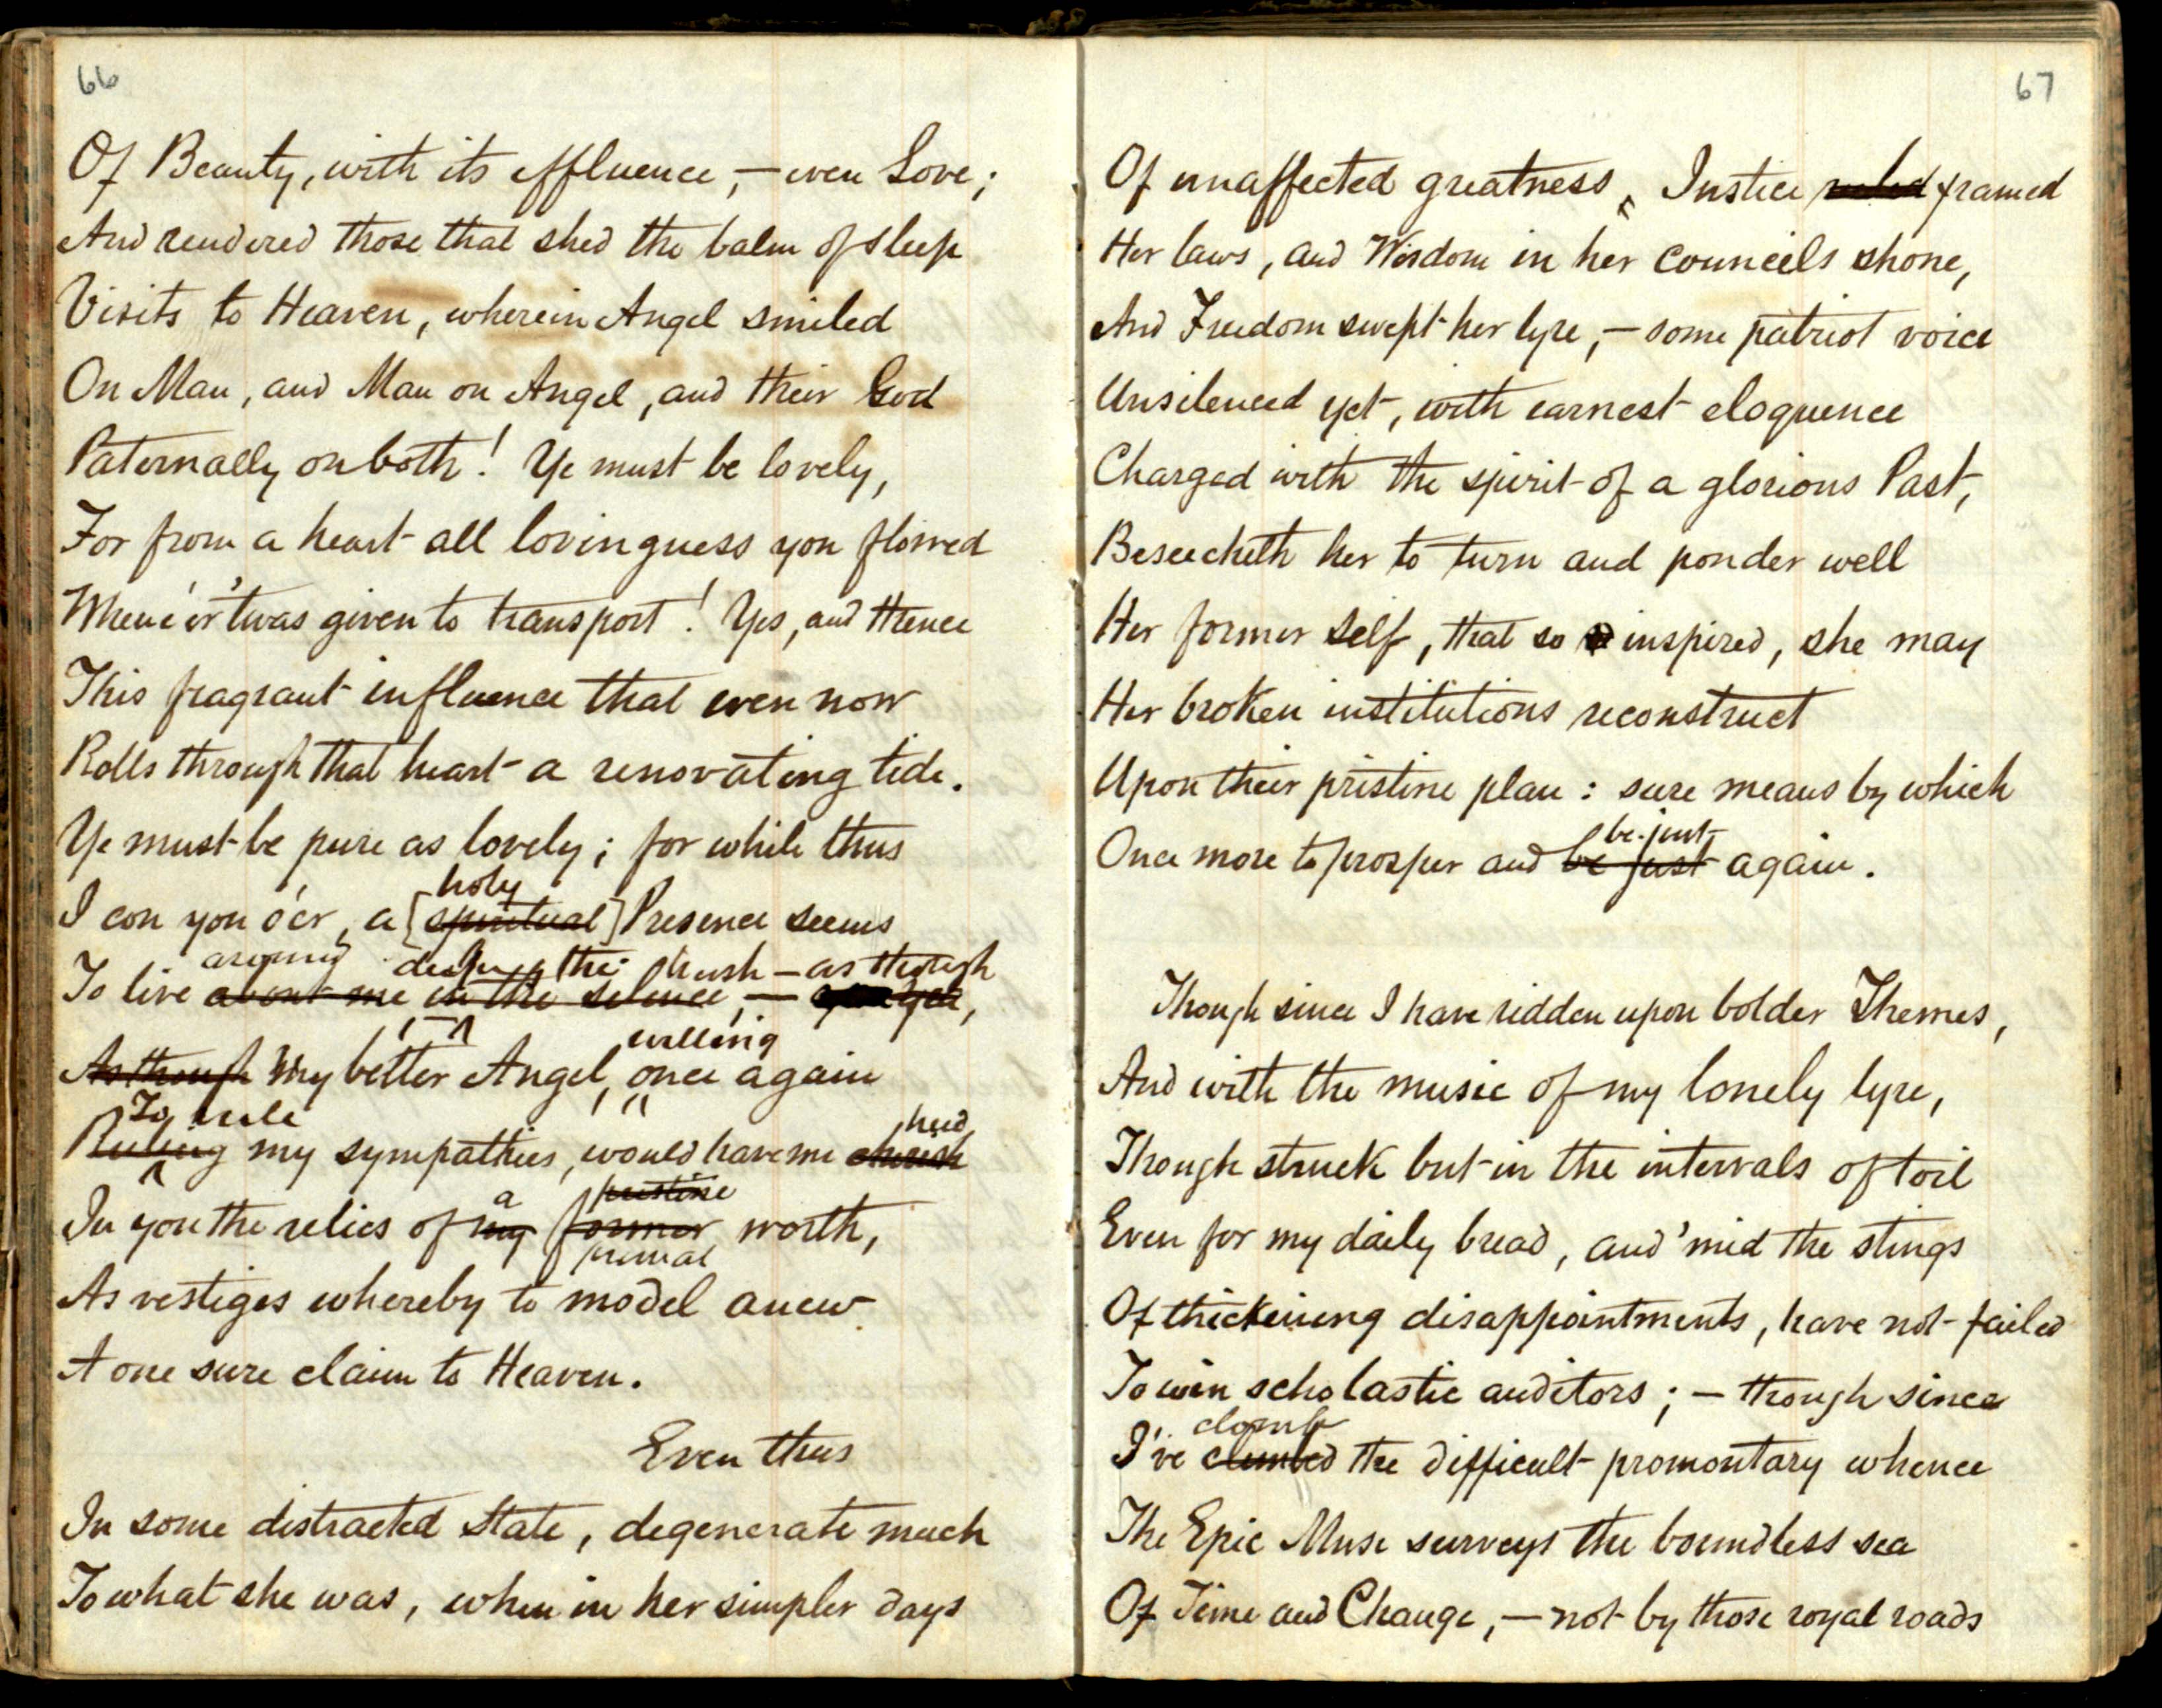 66
Of Beauty, with its effluence, — even Love;
And rendered those that shed the balm of sleep
Visits to Heaven, wherein Angel smiled
On Man, and Man on Angel, and their God
Paternally on both! Ye must be lovely,
For from a heart all lovingness you flowed
Whene'er 'twas given to transport! Yes, and thence
This fragrant influence that even now
Rolls through that heart a renovating tide.
Ye must be pure as lovely; for while thus
holy
I con you o'er, a [spiritual] Presence seems
around the hush — as though
To live about me in the silence, — yea,
willing
As though My better Angel, once again
To rule heed
Ruling my sympathies, would have me cherish
a pristine
In you the relics of my former worth,
primal
As vestiges whereby to model anew
A one sure claim to Heaven.
Even thus
In some distracted State, degenerate much
To what she was, when in her simpler days
67
Of unaffected greatness, Justice ruled framed
Her laws, and Wisdom in her councils shone,
And Freedom swept her lyre, — some patriot voice
Unsilenced yet, with earnest eloquence
Charged with the spirit of a glorious Past,
Beseecheth her to turn and ponder well
Her former self, that so inspired, she may
Her broken institutions reconstruct
Upon their pristine plan: sure means by which
be just
Once more to prosper and be just again.
Though since I have ridden upon bolder Themes,
And with the music of my lonely lyre,
Though struck but in the intervals of toil
Even for my daily bread, and 'mid the stings
Of thickening disappointments, have not failed
To win scholastic auditors; — though since
clomb
I've climbed the difficult promontary whence
The Epic Muse surveys the boundless sea
Of Time and Change, — not by those royal roads